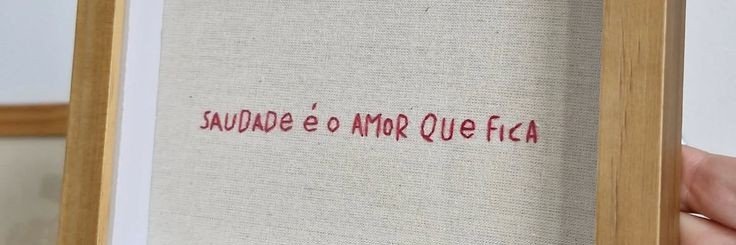 SAUDADe é o AMOR QUe FICA